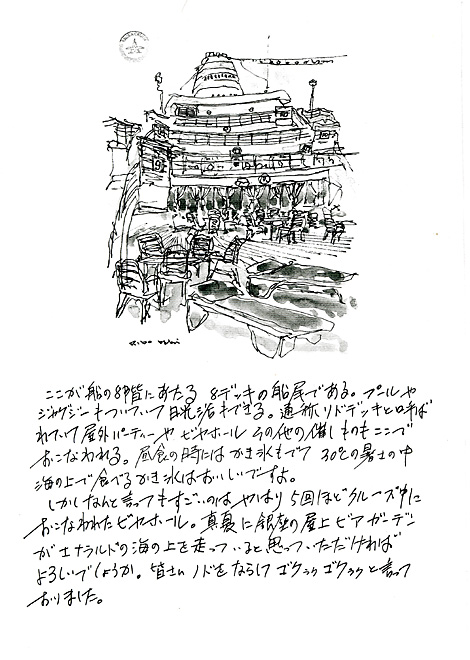 ここが船の8階にあたる 8デッキの船尾である。プールや
ジャグジーもついていて日光浴もできる。通称リドデッキと呼ば
れていて屋外パーティーや ビヤホール その他の催しものもここで
おこなわれる。昼食の時には かき氷もでて 30℃の暑さの中
海の上で食べるかき氷はおいしいですよ。
しかしなんと言ってもすごいのは やはり 5回ほどクルーズ中に
おこなわれたビヤホール。真夏に銀座の屋上ビアガーデン
がエメラルドの海の上を走っていると思っていただければ
よろしいでしょうか。皆さん ノドをならして ゴクラク ゴクラクと言って
おりました。